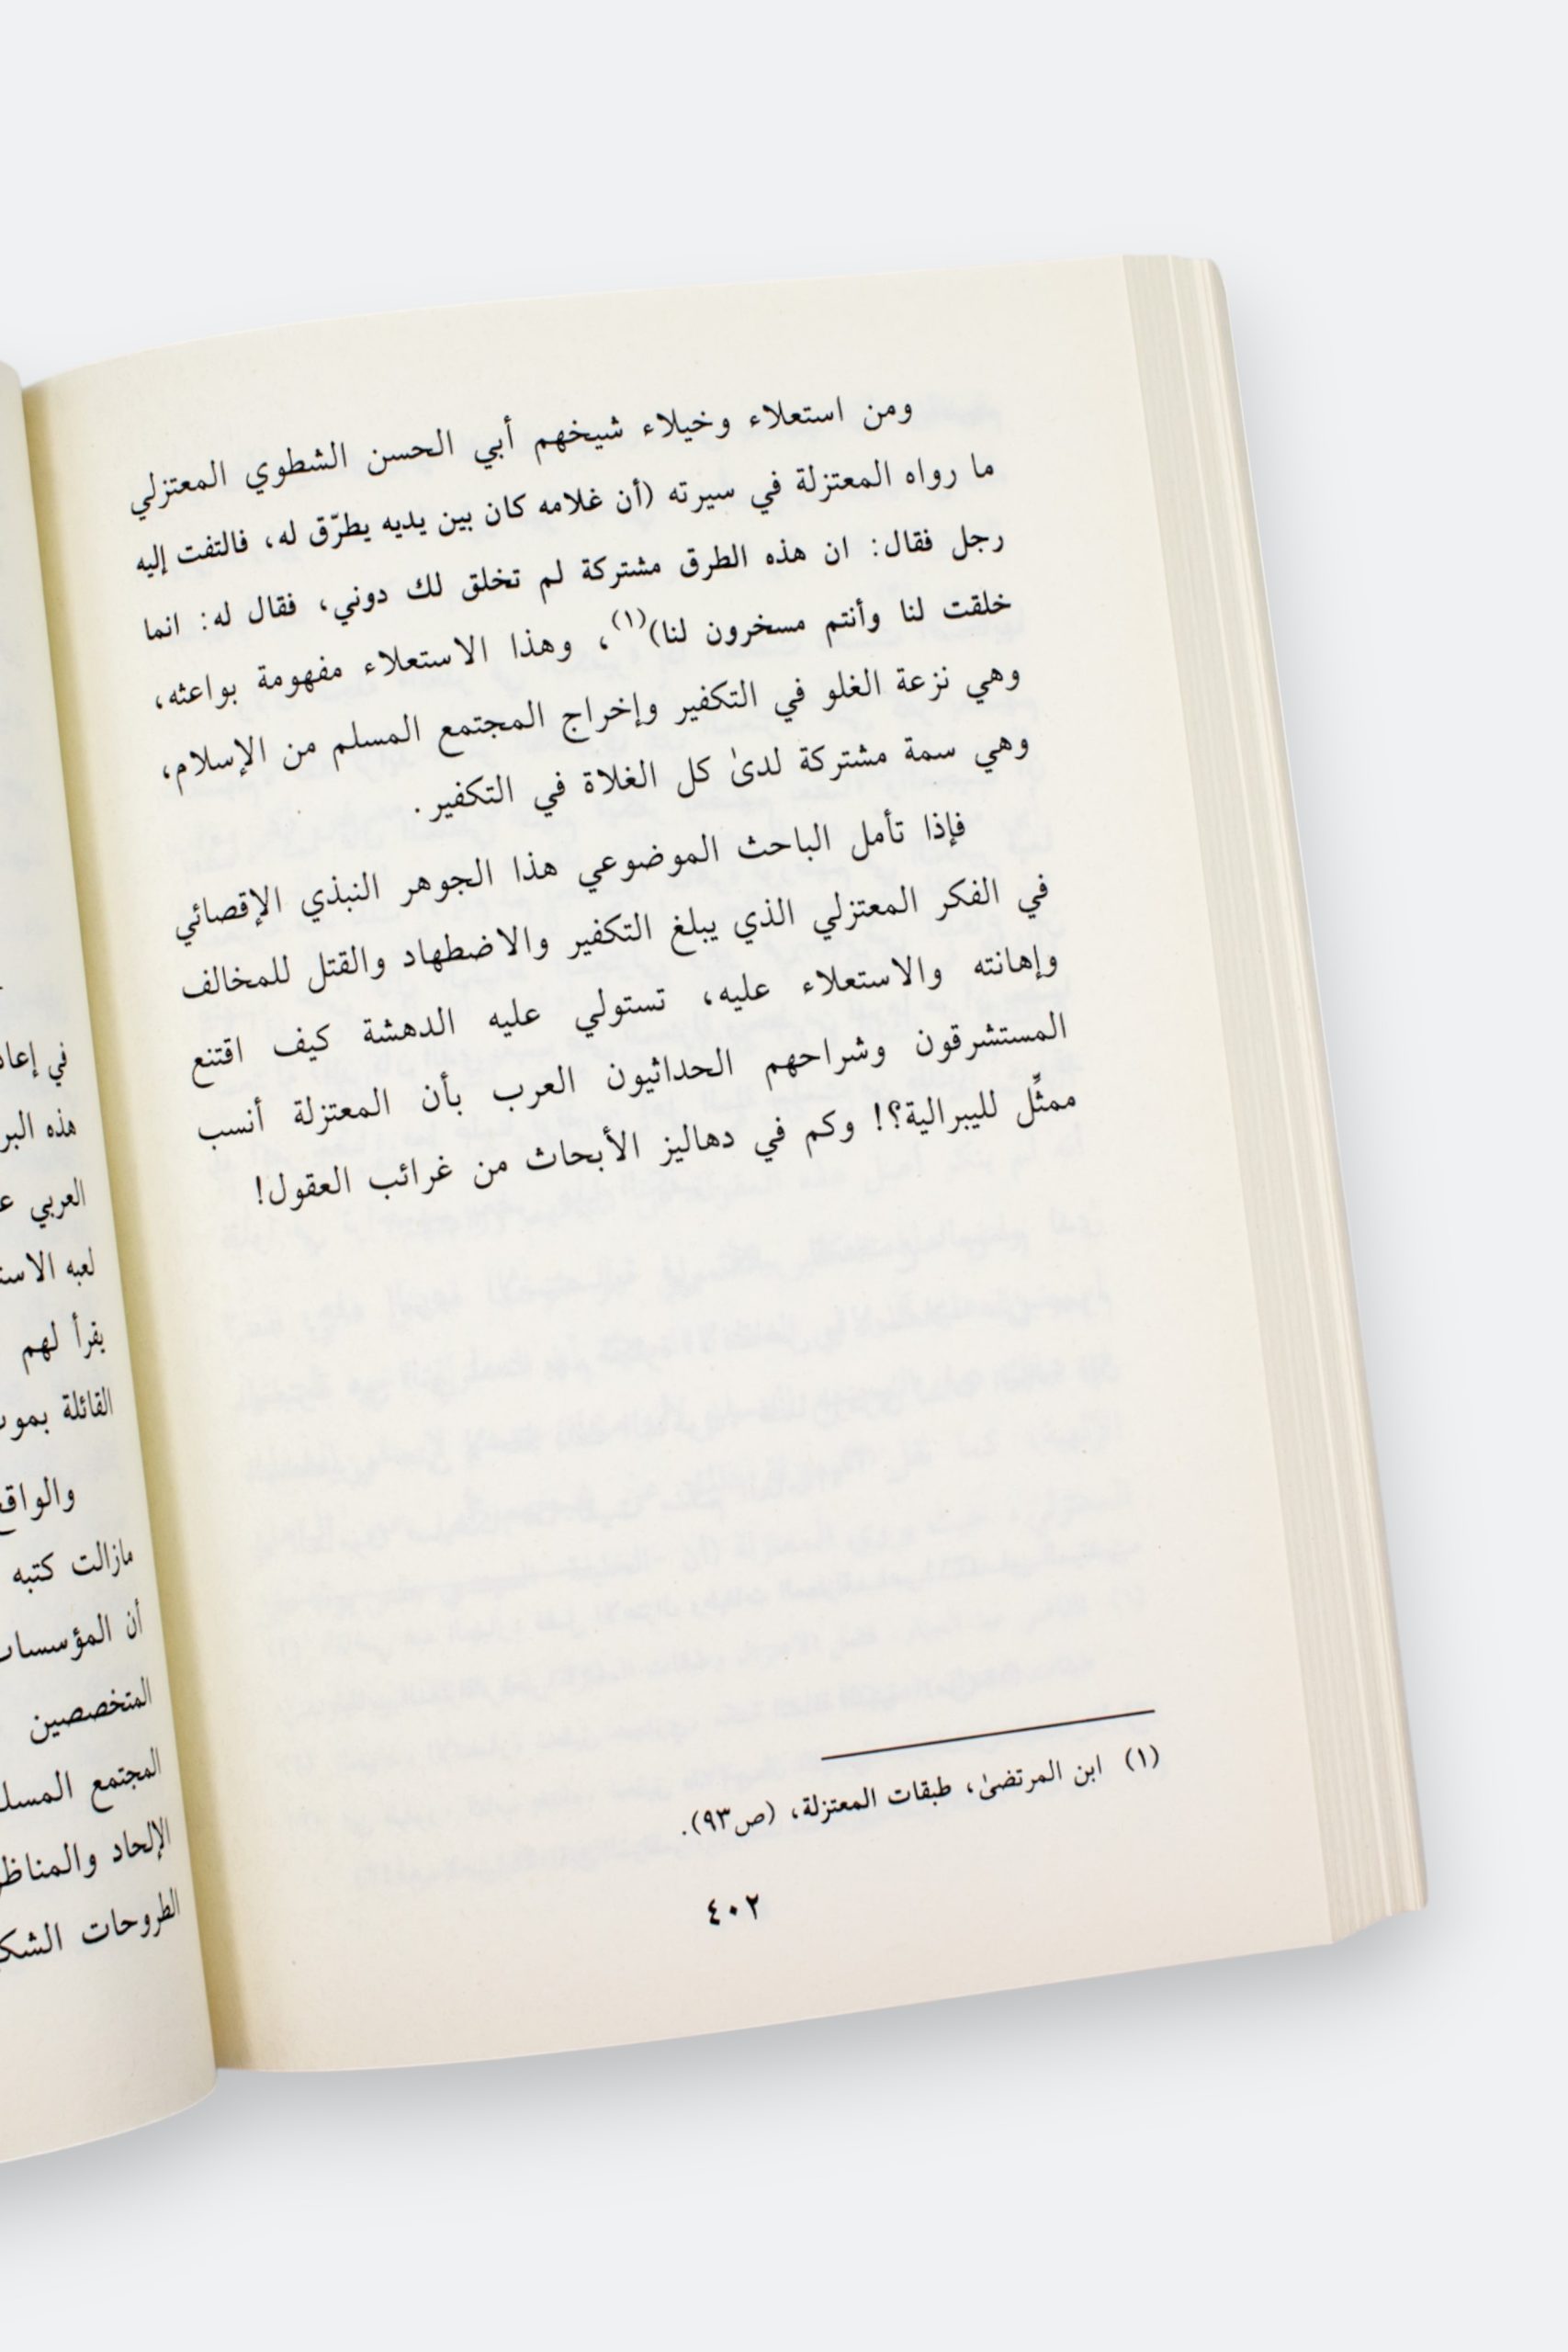 ومن استعلاء وخيلاء شيخهم أبي الحسن الشطوي المعتزلي
ما رواه المعتزلة في سيرته (أن غلامه كان بين يديه يطرّق له، فالتفت إليه
رجل فقال: ان هذه الطرق مشتركة لم تخلق لك دوني، فقال له: انما
خلقت لنا وأنتم مسخرون لنا)(١)، وهذا الاستعلاء مفهومة بواعثه،
وهي نزعة الغلو في التكفير وإخراج المجتمع المسلم من الإسلام،
وهي سمة مشتركة لدىٰ كل الغلاة في التكفير.
فإذا تأمل الباحث الموضوعي هذا الجوهر النبذي الإقصائي
في الفكر المعتزلي الذي يبلغ التكفير والاضطهاد والقتل للمخالف
وإهانته والاستعلاء عليه، تستولي عليه الدهشة كيف اقتنع
المستشرقون وشراحهم الحداثيون العرب بأن المعتزلة أنسب
ممثِّل لليبرالية؟! وكم في دهاليز الأبحاث من غرائب العقول!
(١) ابن المرتضىٰ، طبقات المعتزلة، (ص٩٣).
٤٠٢
في
هذه
العربي
لعبه
يقرأ لهم
القائلة
مازالت كتبه
أن
المتخصصين
المجتمع
الإلحاد
الطروحات